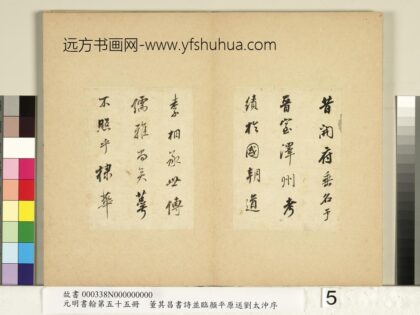 远方书画网-www.yfshuhua.com
昔開府垂名于
晉室澤州考
績於國朝道
素相承世傳
儒雅尚矣萼
不照乎棣華
故書 000338N000000000
元明書翰第五十五冊 董其昌書詩並臨顏平原送劉太沖序
5